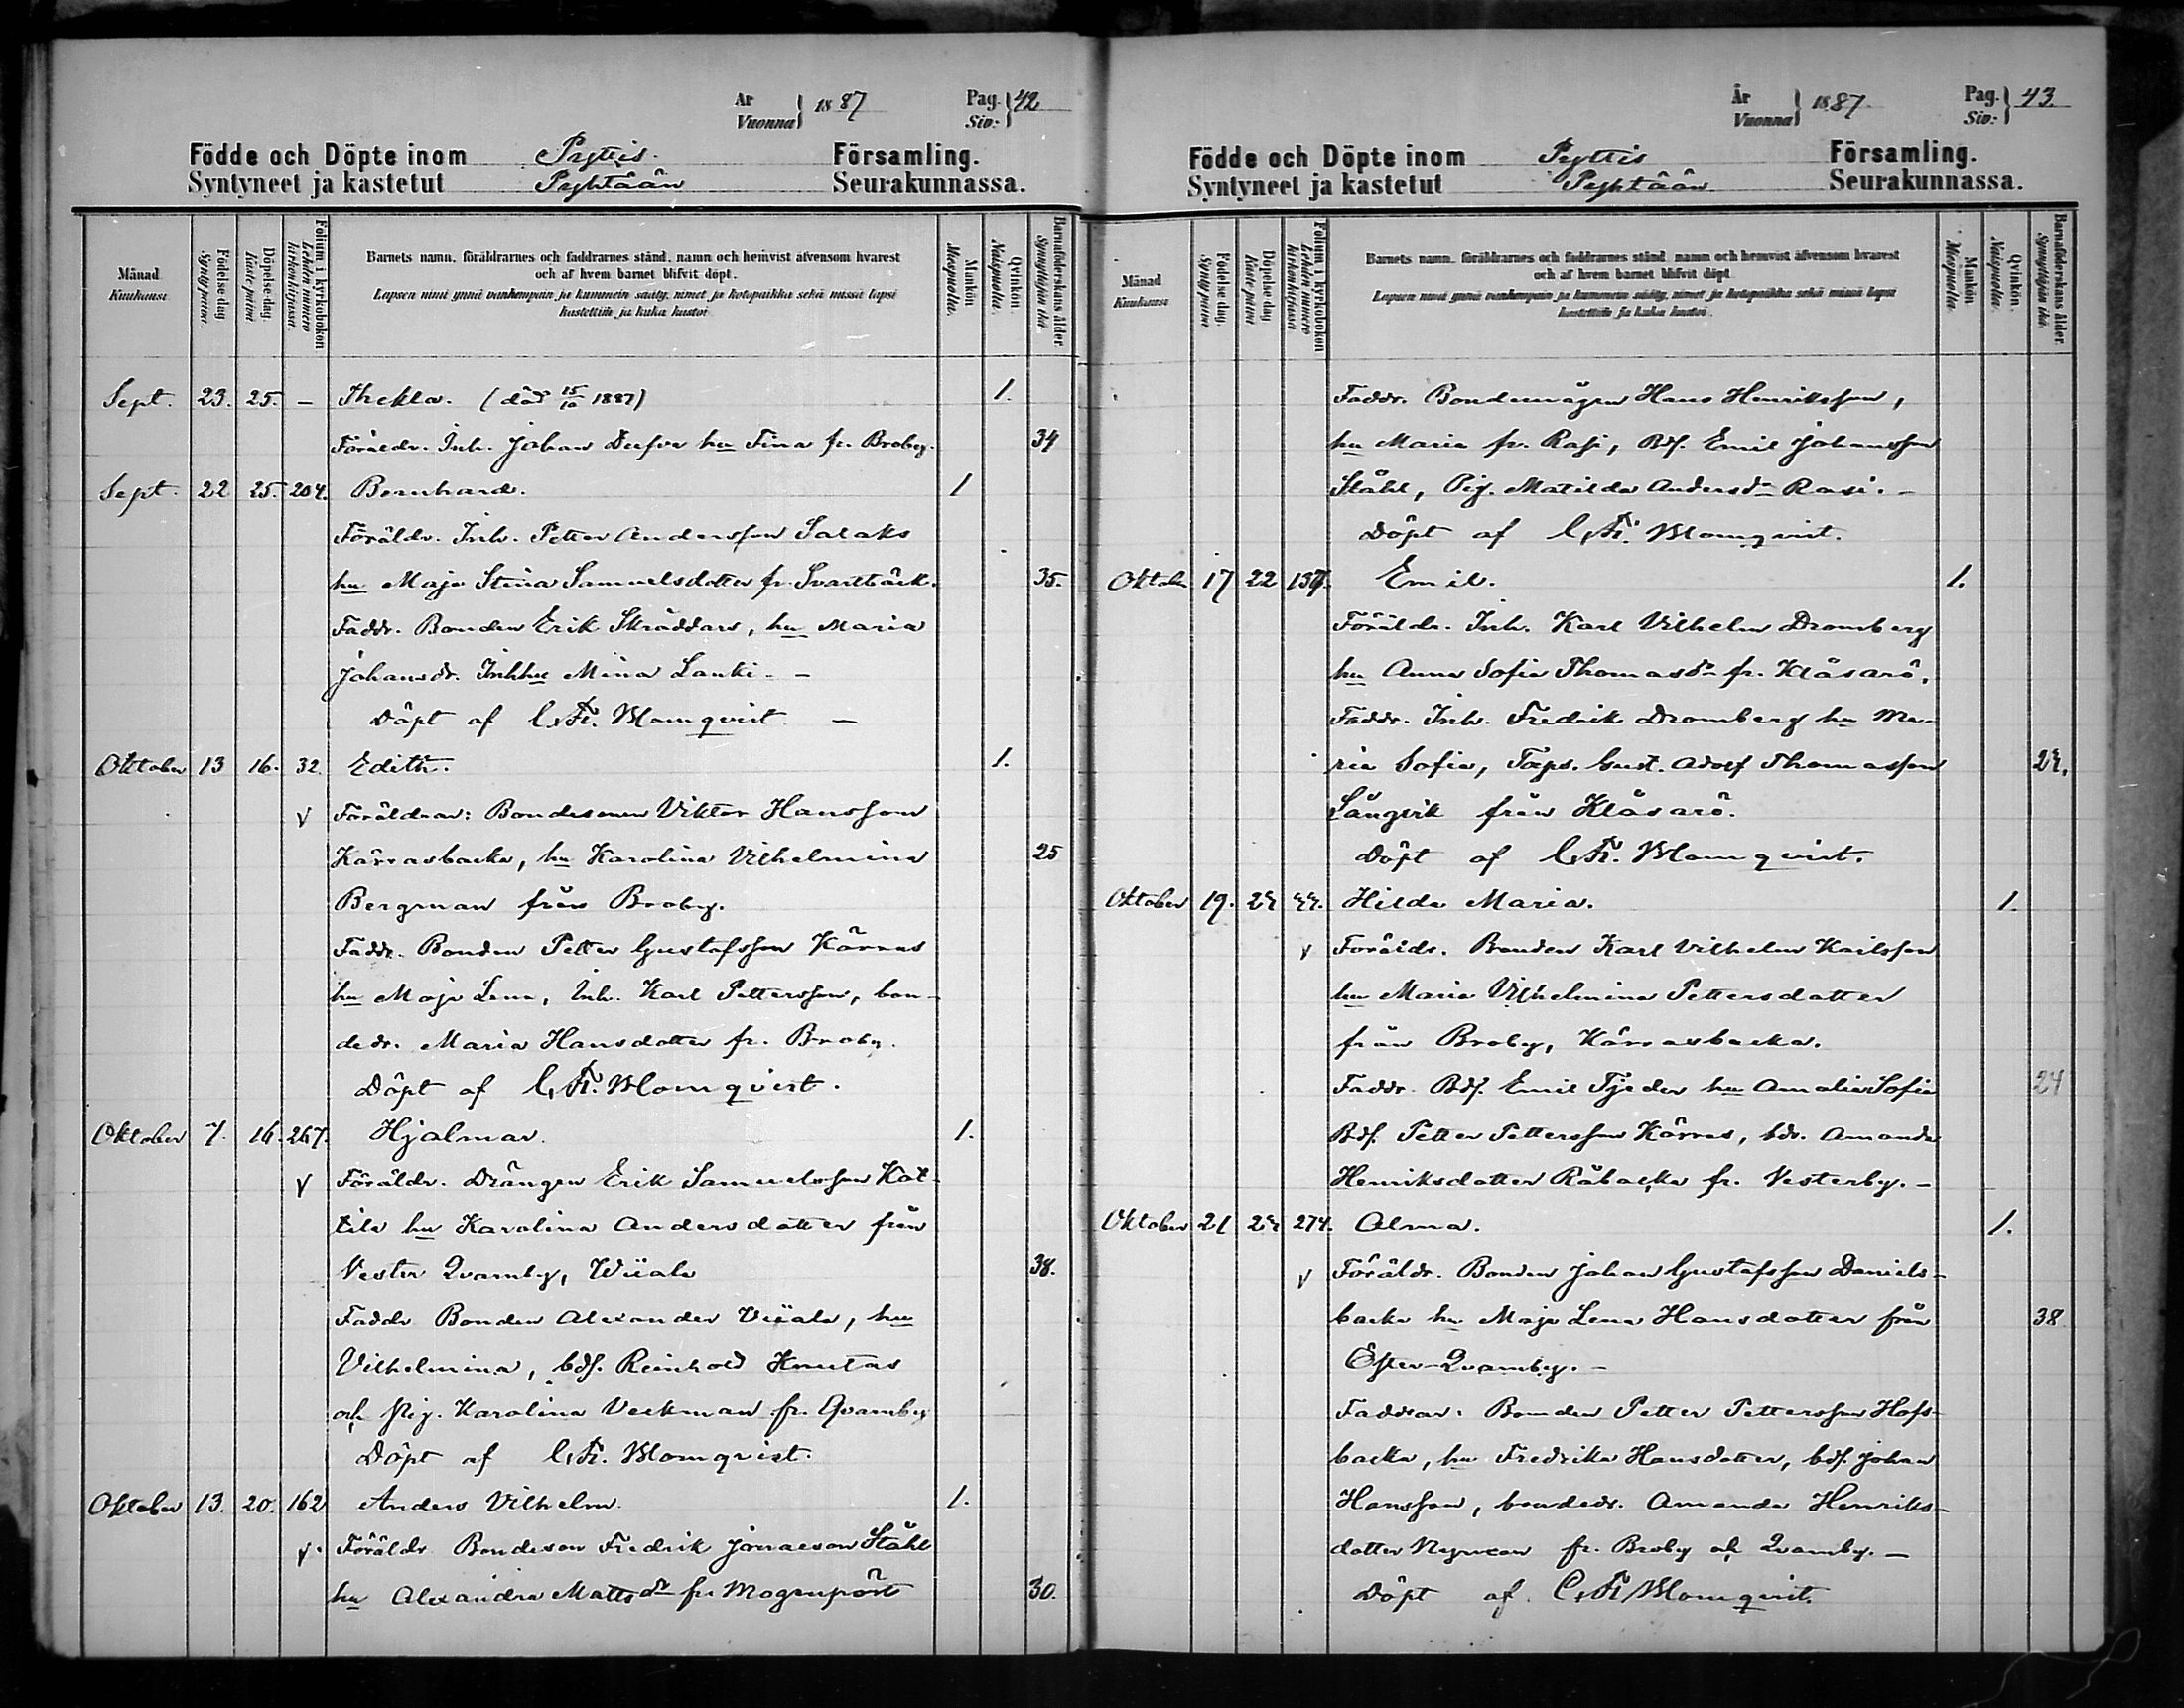 År
Vuonna } 1887
Pag.
Siv: } 42
Födde och Döpte inom Pyttis Församling.
Syntyneet ja kastetut Pyhtään Seurakunnassa.
Månad. Kuukausi.
Födelse-dag Synty-päivä.
Döpelse-dag. Kaste-päivä
Folium i kyrkoboken Lehden numero kirkonkirjassa.
Barnets namn, föräldrarnes och faddrarnes stånd, namn och hemvist äfvensom hvarest
och af hvem barnet blifvit döpt.
Lapsen nimi ynnä vanhempain ja kummein sääty, nimet ja kotopaikka sekä missä lapsi
kastettiin ja kuka kastoi.
Mankön Miespuolia.
Qvinkön. Naispuolia.
Barnaföderskans ålder. Synnyttäjän ikä.
Sept. 23. 25. – Thekla. (död 15/10 1887) 1.
Föräldr. Inh. Johan Dufva hu Fina fr. Broby. 34
Sept. 22 25. 204. Bernhard. 1
Föräldr. Inh. Petter Andersson Salaks
hu Maja Stina Samuelsdotter fr. Svartbäck. 35.
Faddr. Bonden Erik Skräddars, hu Maria
Johansdr. Inhhu Mina Lanki. –
Döpt af C. Fr. Blomqvist. –
Oktober 13 16. 32. Edith. 1.
v Föräldrar: Bondesonen Viktor Hansson
Kärrasbacka, hu Karolina Vilhelmina 25
Bergman från Broby.
Faddr. Bonden Petter Gustafsson Kärras
hu Maja Lena, Inh. Karl Pettersson, bon-
dedr. Maria Hansdotter fr. Broby.
Döpt af C. Fr. Blomqvist.
Oktober 7. 16. 267. Hjalmar. 1.
v Föräldr. Drängen Erik Samuelsson Kat-
tila hu Karolina Andersdotter från
Vester Qvarnby, Wiiala 38.
Faddr Bonden Alexander Viiala, hu
Vilhelmina, bdf. Reinhold Knutas
och Pig. Karolina Veckman fr. Qvarnby
Döpt af C. Fr. Blomqvist.
Oktober 13. 20. 162 Anders Vilhelm. 1.
v. Föräldr Bondeson Fredrik Ståhl
hu Alexandra Mattsdr fr. Mogenpört 30.
År
Vuonna } 1887.
Pag.
Siv: } 43.
Födde och Döpte inom Pyttis Församling.
Syntyneet ja kastetut Pyhtään Seurakunnassa.
Månad Kuukausi
Födelse dag. Synty päivä
Döpelse dag Kaste päivä
Folium i kyrkoboken Lehden numero kirkonkirjassa
Barnets namn, föräldrarnes och faddrarnes stånd, namn och hemvist äfvensom hvarest
och af hvem barnet blifvit döpt.
Lapsen nimi ynnä vanhempain ja kummein sääty, nimet ja kotopaikka sekä missä lapsi
kastettiin ja kuka kastoi.
Mankön Miespuolia.
Qvinkön. Naispuolia.
Barnaföderskans ålder. Synnyttäjän ikä.
Faddr. Bondemågen Hans Henriksson,
hu Maria fr. Rasi, Bdf. Emil Johansson
Ståhl, Pig. Matilda Andersdr Rasi. –
Döpt af C. Fr. Blomqvist.
Oktober 17 22 Emil. 1.
Föräldr. Inh. Karl Vilhelm Dromberg
hu Anna Sofia Thomasdr fr. Klåsarö.
Faddr. Inh. Fredrik Dromberg hu Ma-
ria Sofia, Torps. Gust. Adolf Thomasson 24.
Långvik från Klåsarö.
Döpt af C. Fr. Blomqvist.
Oktober 19. 24 44. Hilda Maria. 1.
v Föräldr. Bonden Karl Vilhelm Karlsson
hu Maria Vilhelmina Pettersdotter
från Broby, Kärrasbacka.
Faddr. Bdf. Emil Tjeder hu Amalia Sofia 24
Bdf. Petter Pettersson Kärras, bdr. Amanda
Henriksdotter Råbacka fr. Vesterby. –
Oktober 21 24 274. Alma. 1.
v Föräldr. Bonden Johan Gustafsson Daniels-
backa hu Maja Lena Hansdotter från 38
Öster-Qvarnby. –
Faddrar. Bonden Petter Pettersson Hofs-
backa, hu Fredrika Hansdotter, bdf. Johan
Hansson, bondedr. Amanda Henriks-
dotter fr. Broby och Qvarnby. –
Döpt af C. Fr Blomqvist.